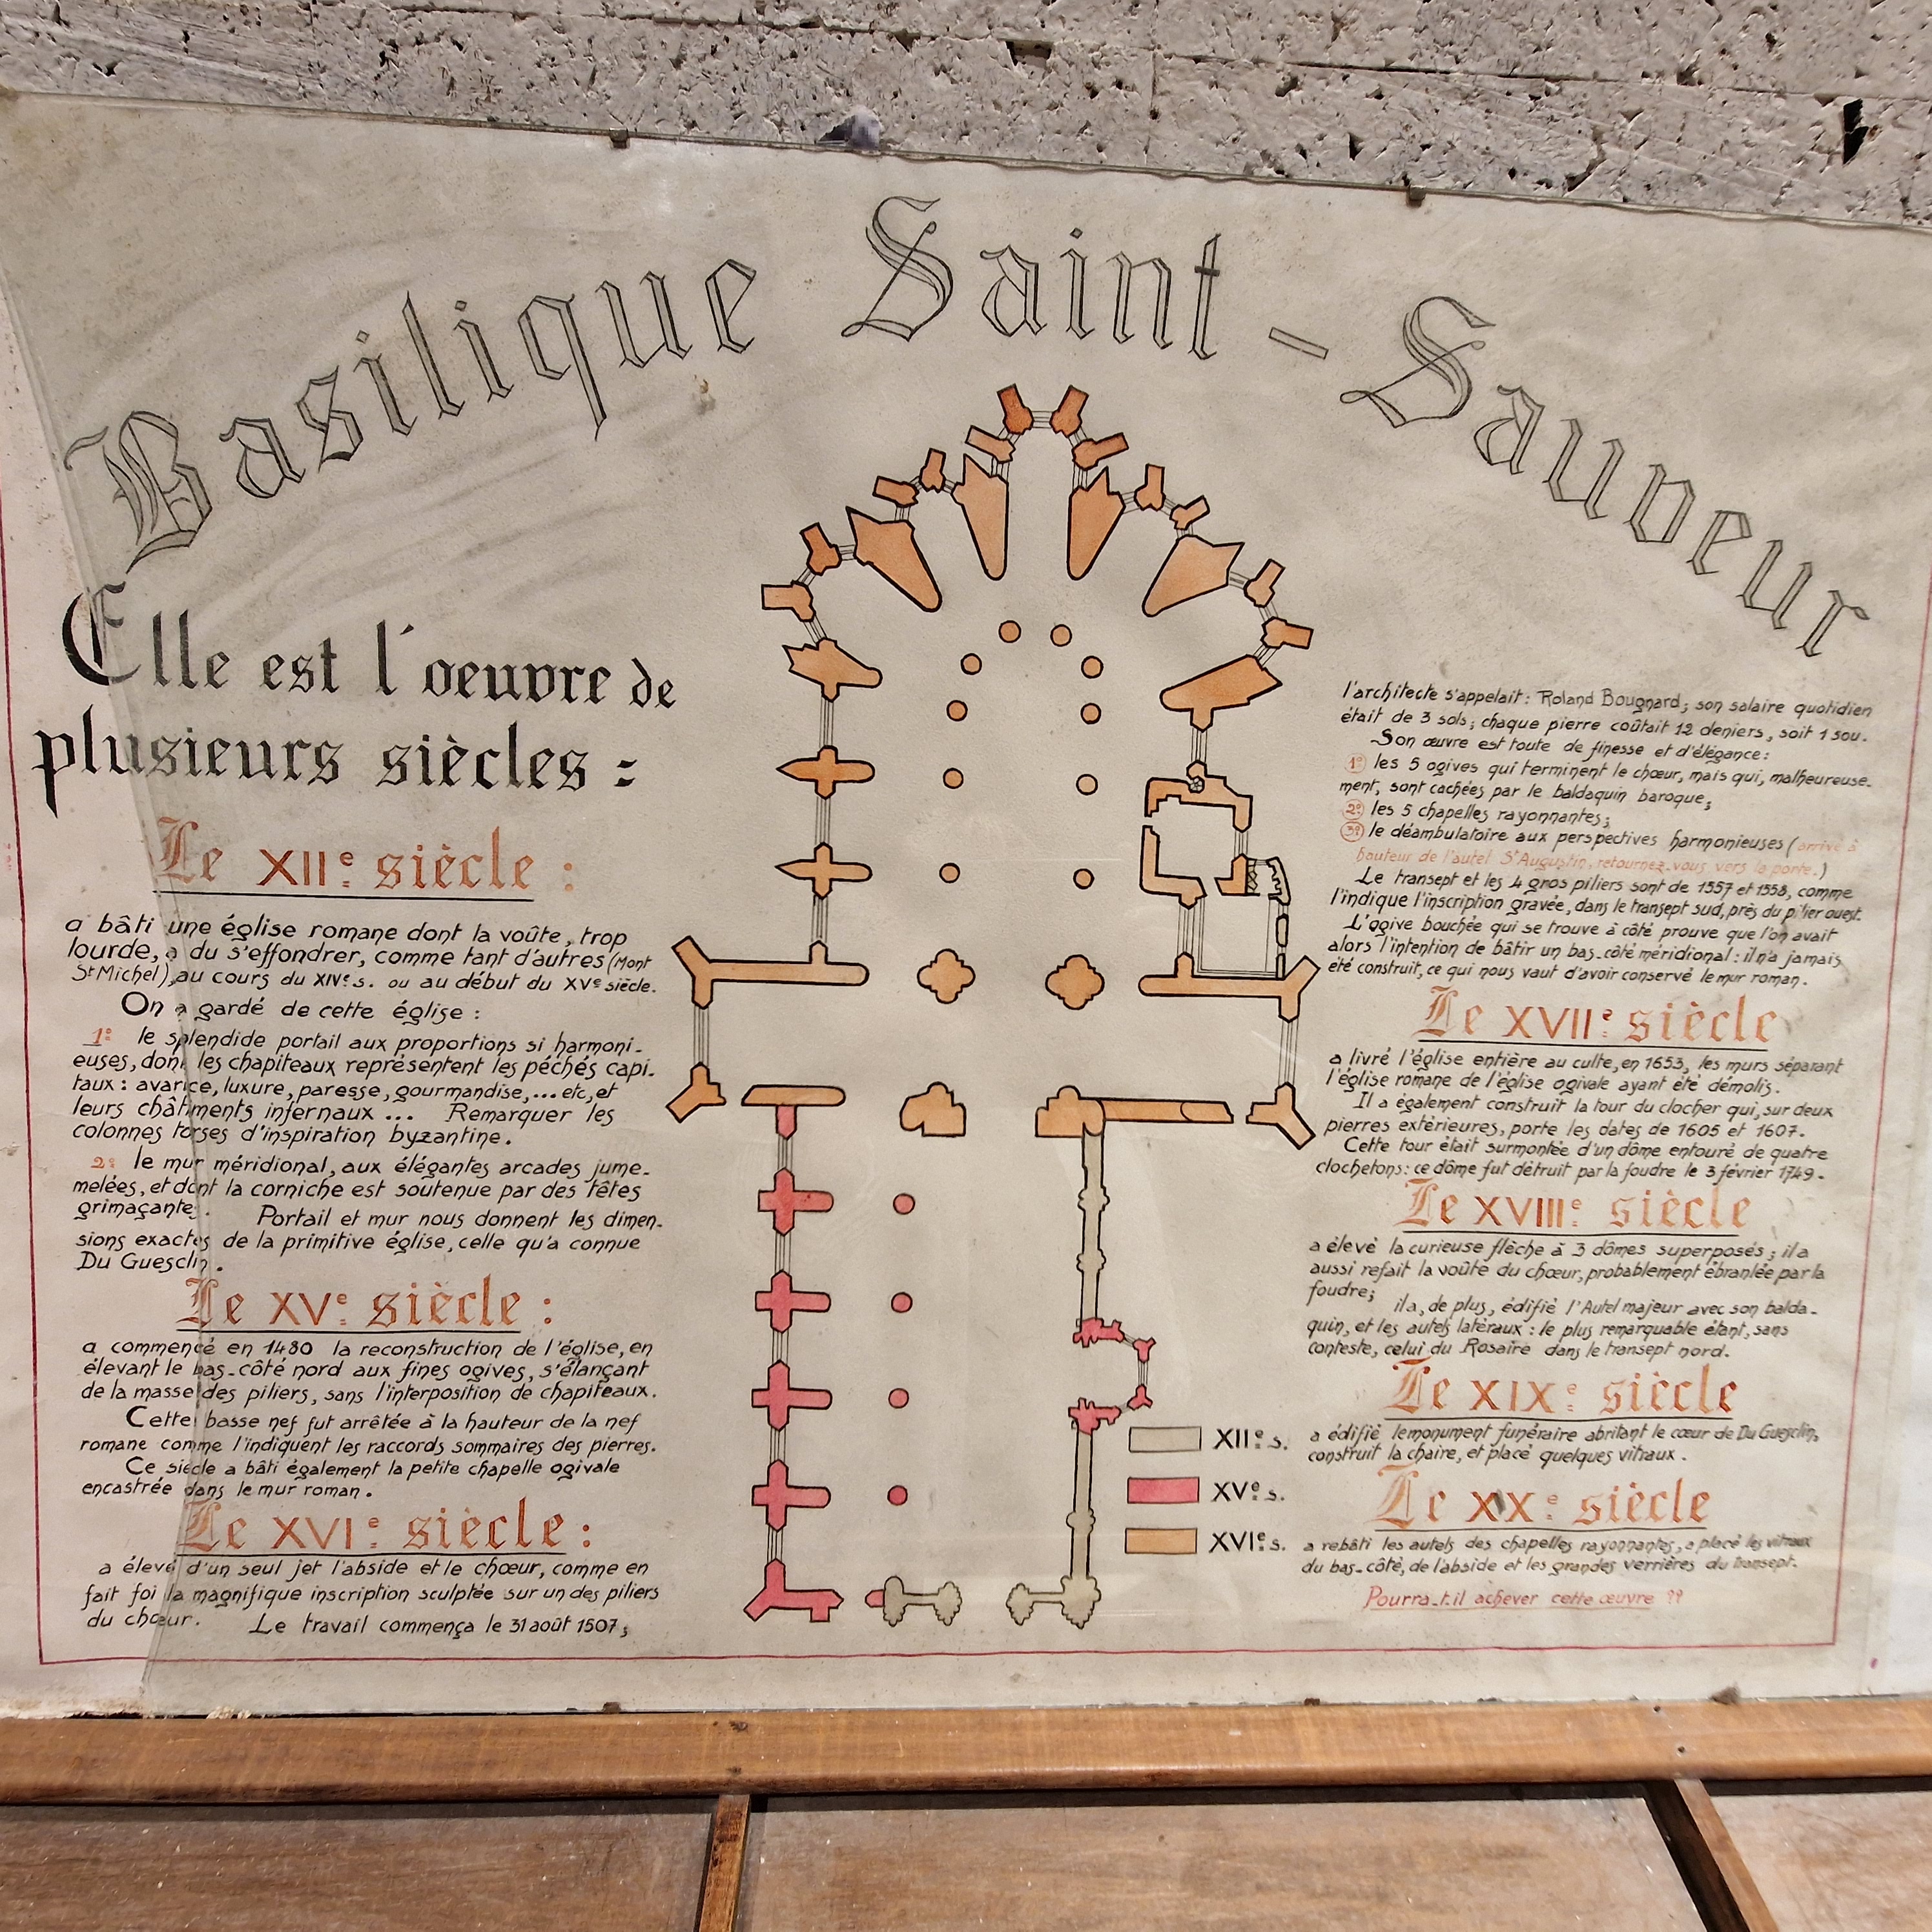 Basilique Saint-Sauveur
Elle est l'oeuvre de
plusieurs siècles :
Le XIIe siècle :
a bâti une église romane dont la voûte, trop
lourde, a du s'effondrer, comme tant d'autres (Mont
St Michel), au cours du XIVe s. ou au début du XVe siècle.
On a gardé de cette église :
1º le splendide portail aux proportions si harmoni-
euses, dont les chapiteaux représentent les péchés capi-
taux : avarice, luxure, paresse, gourmandise,... etc, et
leurs châtiments infernaux ... Remarquer les
colonnes torses d'inspiration byzantine.
2º le mur méridional, aux élégantes arcades jume-
melées, et dont la corniche est soutenue par des têtes
grimaçantes. Portail et mur nous donnent les dimen-
sions exactes de la primitive église, celle qu'a connue
Du Guesclin.
Le XVe siècle :
a commencé en 1480 la reconstruction de l'église, en
élevant le bas-côté nord aux fines ogives, s'élançant
de la masse des piliers, sans l'interposition de chapiteaux.
Cette basse nef fut arrêtée à la hauteur de la nef
romane comme l'indiquent les raccords sommaires des pierres.
Ce siècle a bâti également la petite chapelle ogivale
encastrée dans le mur roman.
Le XVIe siècle :
a élevé d'un seul jet l'abside et le chœur, comme en
fait foi la magnifique inscription sculptée sur un des piliers
du chœur. Le travail commença le 31 août 1507;
l'architecte s'appelait : Roland Bougnard; son salaire quotidien
était de 3 sols; chaque pierre coûtait 12 deniers, soit 1 sou.
Son œuvre est toute de finesse et d'élégance :
1º les 5 ogives qui terminent le chœur, mais qui, malheureuse-
ment, sont cachées par le baldaquin baroque;
2º les 5 chapelles rayonnantes;
3º le déambulatoire aux perspectives harmonieuses (arrivé à
hauteur de l'autel St Augustin, retournez-vous vers la porte.)
Le transept et les 4 gros piliers sont de 1557 et 1558, comme
l'indique l'inscription gravée, dans le transept sud, près du pilier ouest.
L'ogive bouchée qui se trouve à côté prouve que l'on avait
alors l'intention de bâtir un bas-côté méridional : il n'a jamais
été construit, ce qui nous vaut d'avoir conservé le mur roman.
Le XVIIe siècle
a livré l'église entière au culte, en 1653, les murs séparant
l'église romane de l'église ogivale ayant été démolis.
Il a également construit la tour du clocher qui, sur deux
pierres extérieures, porte les dates de 1605 et 1607.
Cette tour était surmontée d'un dôme entouré de quatre
clochetons : ce dôme fut détruit par la foudre le 3 février 1749.
Le XVIIIe siècle
a élevé la curieuse flèche à 3 dômes superposés; il a
aussi refait la voûte du chœur, probablement ébranlée par la
foudre;
il a, de plus, édifié l'Autel majeur avec son balda-
quin, et les autels latéraux : le plus remarquable étant, sans
conteste, celui du Rosaire dans le transept nord.
Le XIXe siècle
a édifié le monument funéraire abritant le cœur de Du Guesclin,
construit la chaire, et placé quelques vitraux.
Le XXe siècle
a rebâti les autels des chapelles rayonnantes, a placé les vitraux
du bas-côté, de l'abside et les grandes verrières du transept.
Pourra-t-il achever cette œuvre ??
XIIe s.
XVe s.
XVIe s.